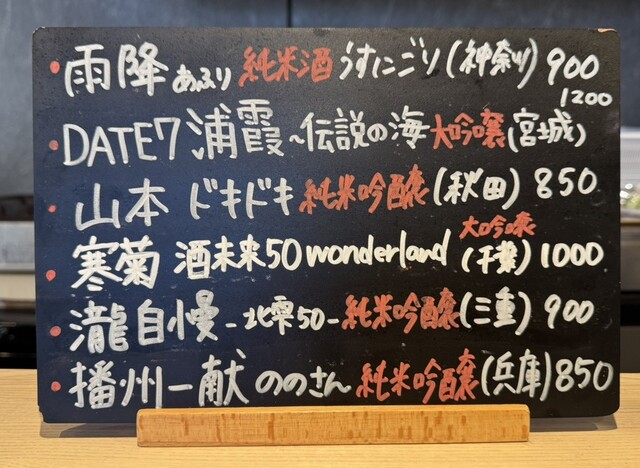 ・雨降 あふり 純米酒 うすにごり(神奈川) 900
1200
・DATE7 浦霞 ~伝説の海 大吟醸(宮城)
・山本 ドキドキ 純米吟醸(秋田) 850
大吟醸
・寒菊 酒未来50 wonderland (千葉) 1000
・瀧自慢 -北雫50- 純米吟醸(三重) 900
・播州一献 ののさん 純米吟醸(兵庫) 850